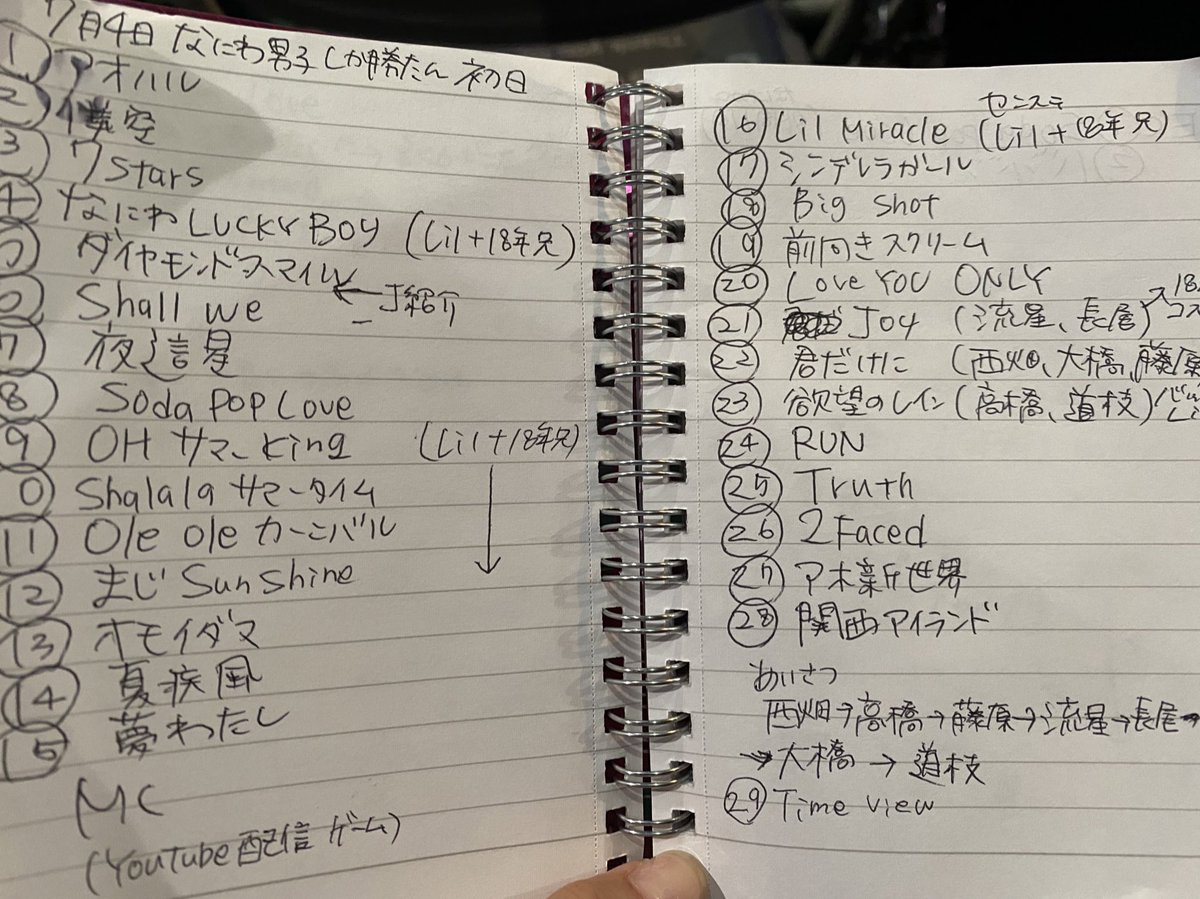 7月4日 なにわ男子しか勝たん 初日
① アオハル
② 僕空
③ 7 Stars
④ なにわLUCKY BOY (Lil+18年兄)
ダイヤモンドスマイル
Shall we ← J紹介
⑦ 夜這星
⑧ Soda POP Love
⑨ OH サマーking (Lil+18年兄)
Shalala サマータイム
⑪ Ole Ole カーニバル
⑫ まじ Sunshine ↓
⑬ オモイダマ
⑭ 夏疾風
⑮ 夢わたし
MC
(YouTube配信 ゲーム)
センステ
⑯ Lil Miracle (Lil+18年兄)
⑰ シンデレラガール
⑱ Big Shot
⑲ 前向きスクリーム
⑳ Love YOU ONLY
㉑ Joy (流星、長尾) → 18
コス
㉒ 君だけに (西畑、大橋、藤原
㉓ 欲望のレイン (高橋、道枝)
㉔ RUN
㉕ Truth
㉖ 2 Faced
㉗ アホ新世界
㉘ 関西アイランド
あいさつ
西畑→高橋→藤原→流星→長尾→
→大橋→道枝
㉙ Time view